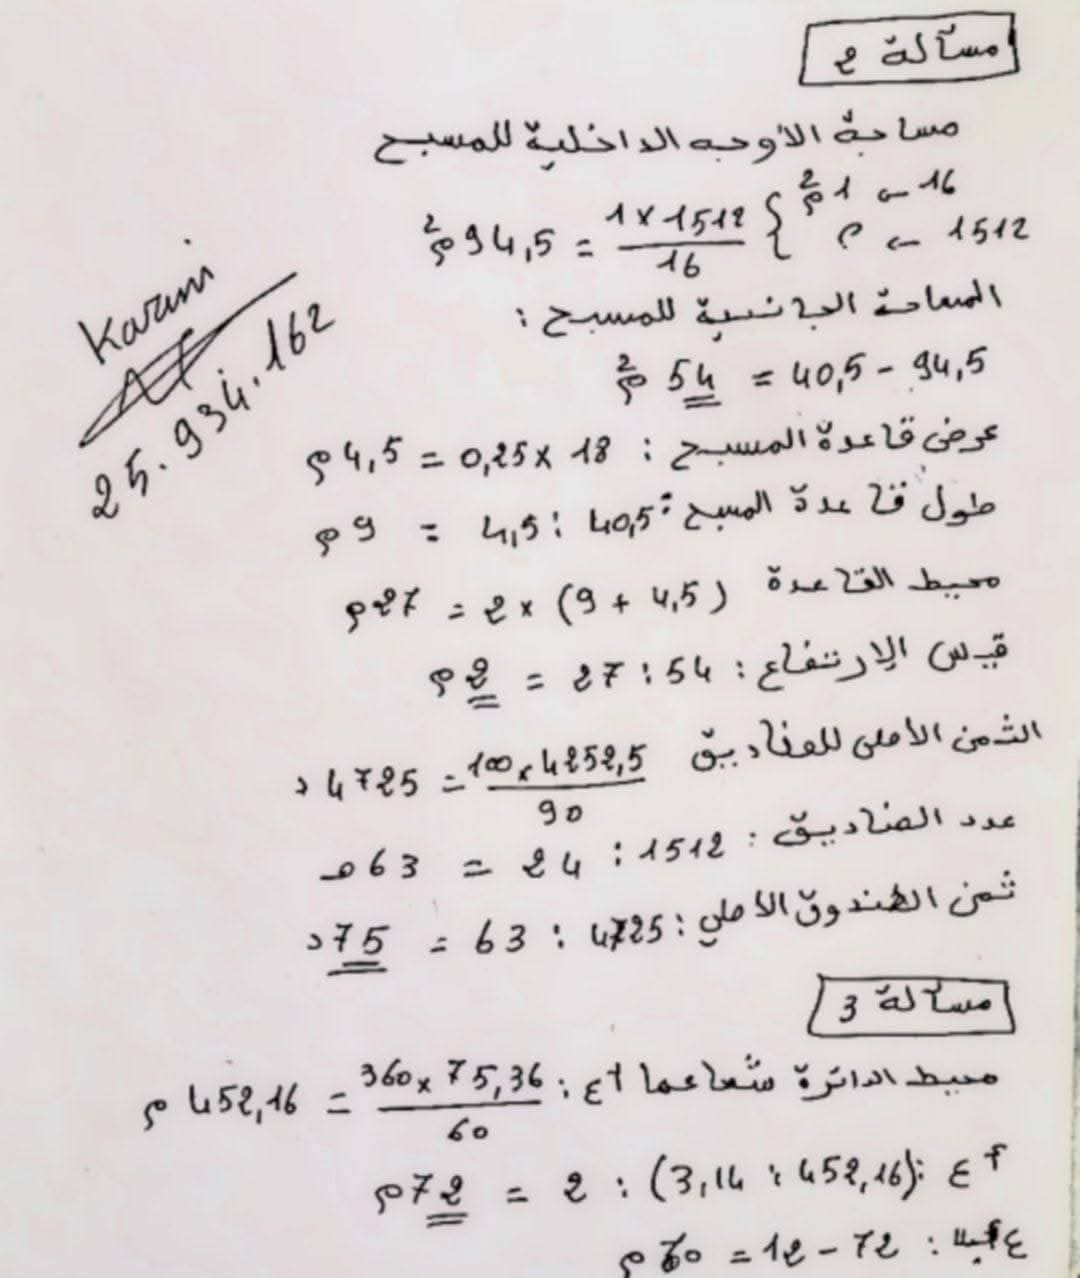 مسألة 2
مساحة الأوجه الداخلية للمسبح
16 ← 1م²
1512 ← م } 1 × 1512 / 16 = 94,5 م²
المساحة الجانبية للمسبح :
94,5 - 40,5 = 54 م²
عرض قاعدة المسبح : 18 × 0,25 = 4,5 م
طول قاعدة المسبح : 40,5 : 4,5 = 9 م
محيط القاعدة (4,5 + 9) × 2 = 27 م
قيس الإرتفاع : 54 : 27 = 2 م
الثمن الأصلي للصناديق 100 × 4252,5 / 90 = 4725 د
عدد الصناديق : 1512 : 24 = 63 ص
ثمن الصندوق الأصلي : 4725 : 63 = 75 د
Karim
25.934.162
مسألة 3
محيط الدائرة شعاعها أع : 360 × 75,36 / 60 = 452,16 م
أع : (452,16 : 3,14) : 2 = 72 م
72 - 12 = 60 م